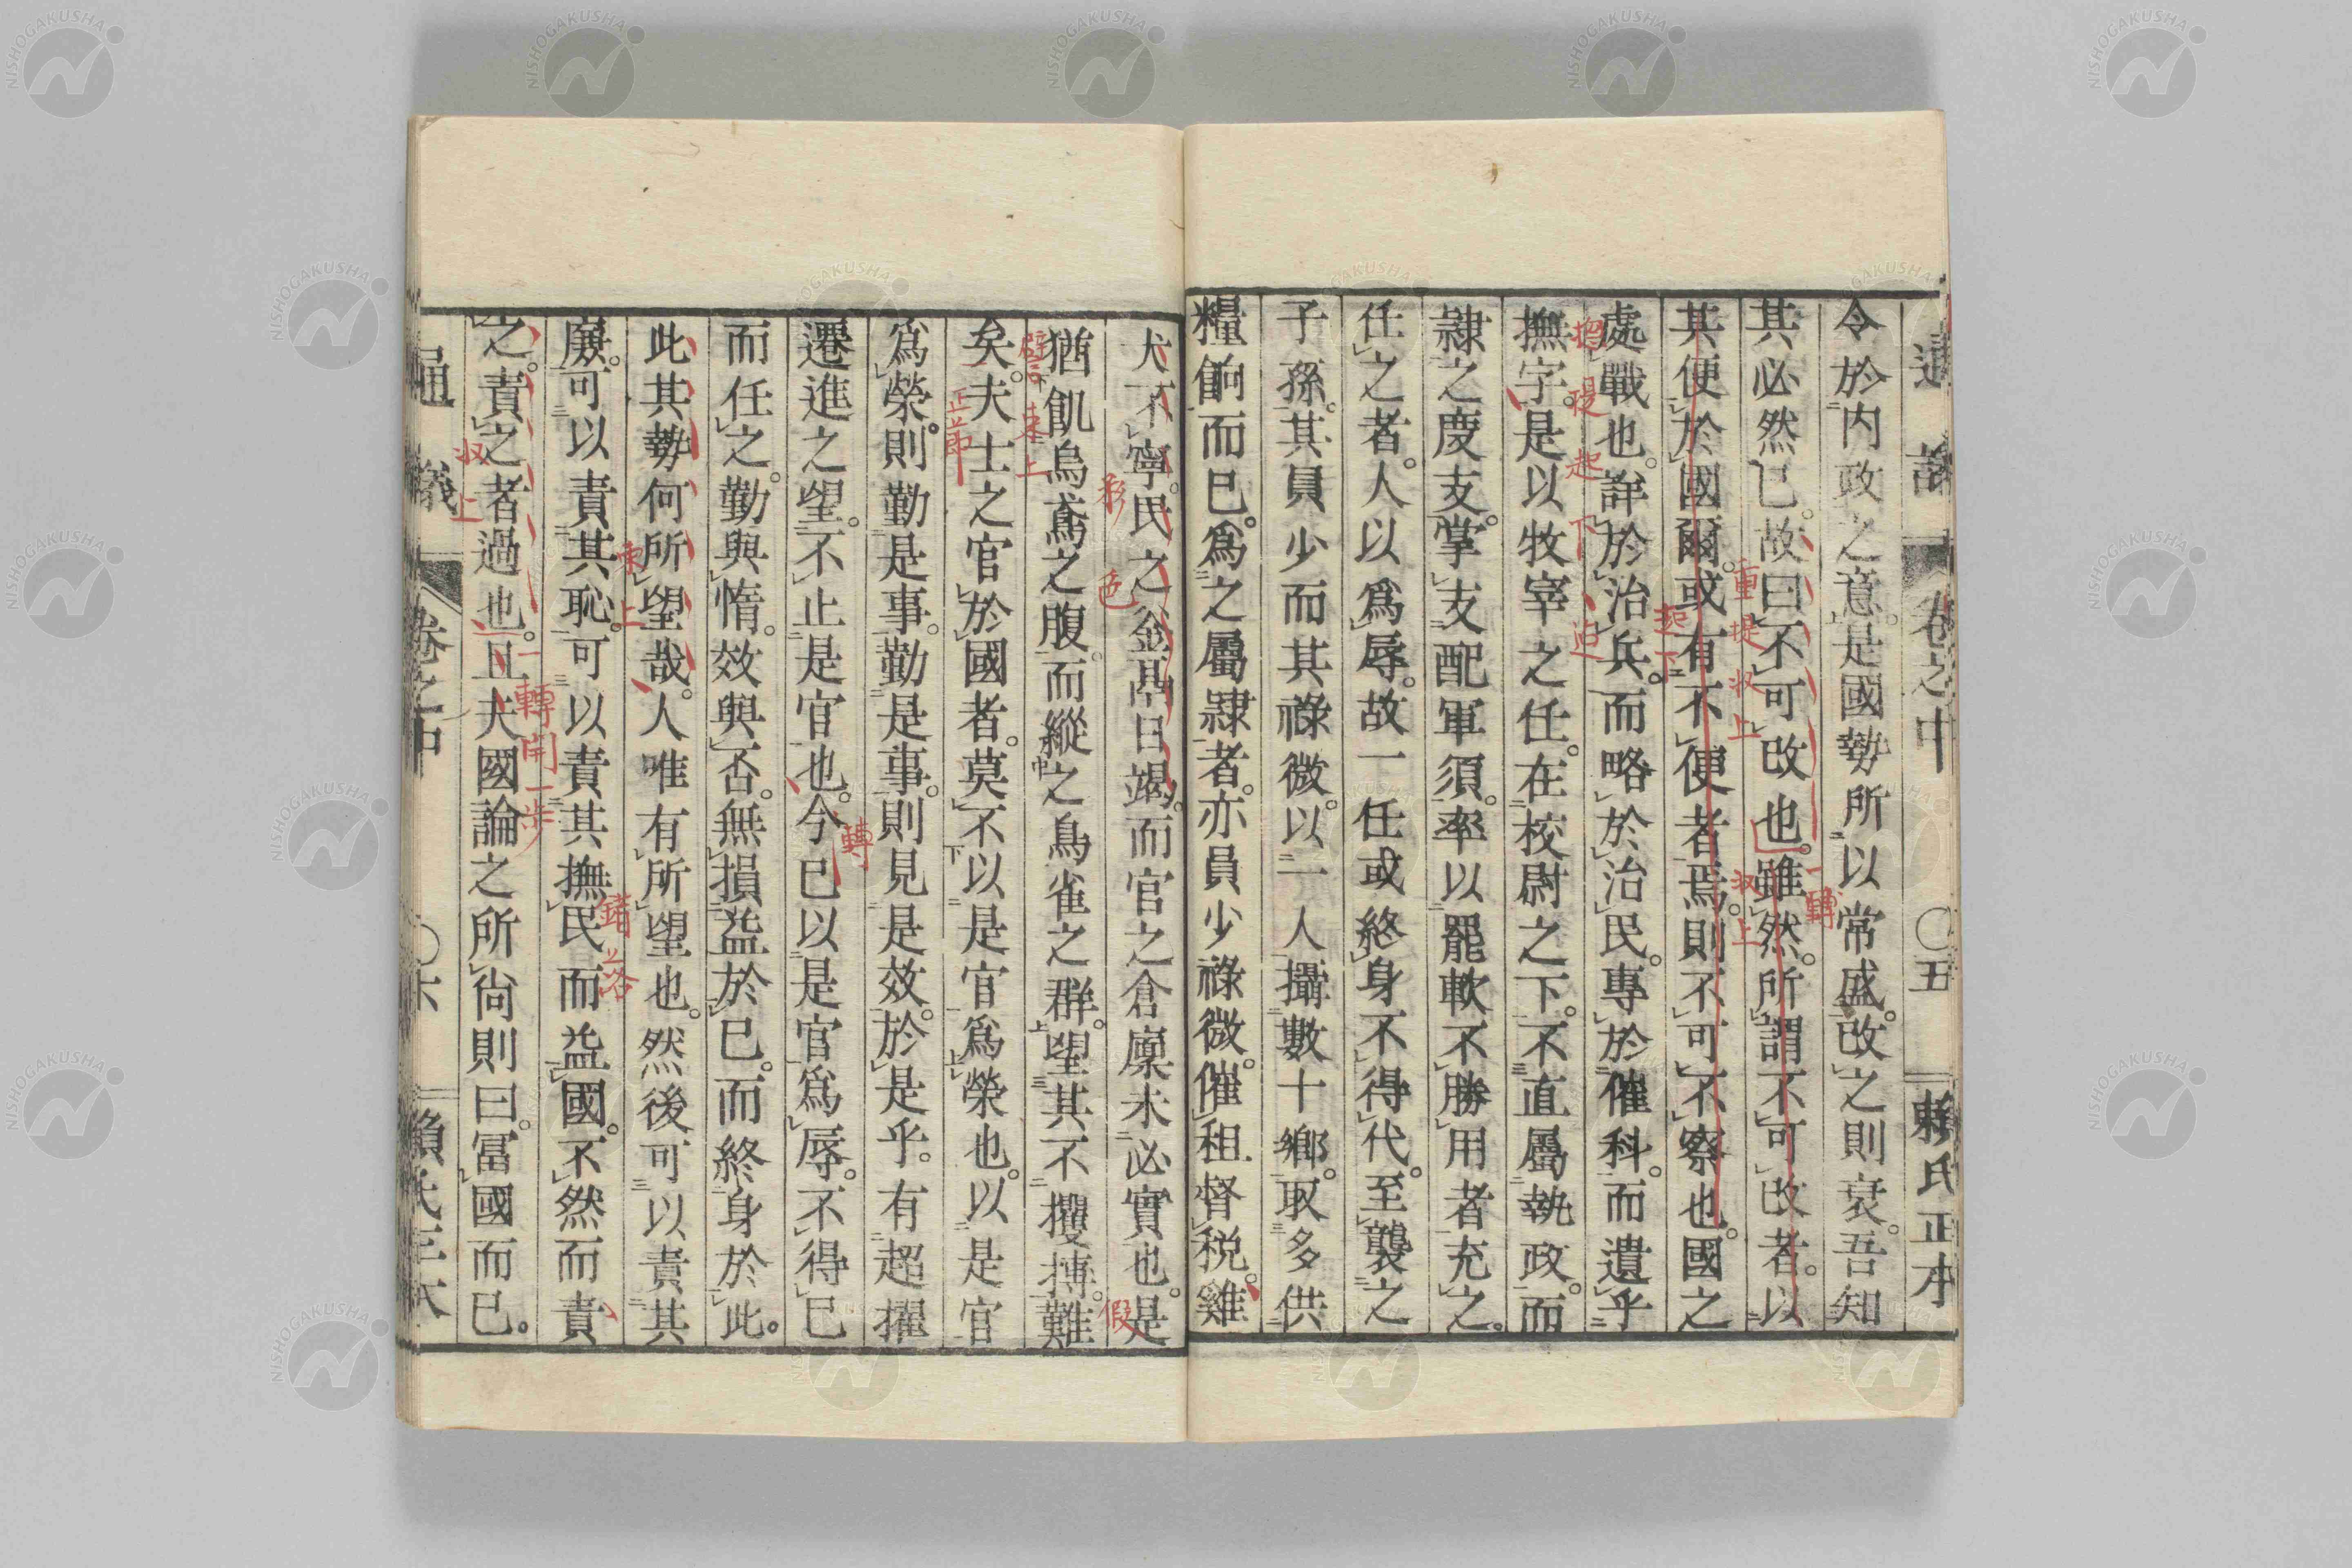 通議 卷之中 〇五 賴氏正本
令於内政之意。是國勢所以常盛。改之則衰。吾知
其必然已。故曰不可改也。雖然。所謂不可改者。以
其便於國爾。或有不便者焉。則不可不察也。國之
處戰也。詳於治兵。而略於治民。專於催科。而遺乎
撫字。是以牧宰之任。在校尉之下。不直屬執政。而
隷之度支。掌支配軍須。率以罷軟不勝用者充之。
任之者。人以爲辱。故一任或終身不得代。至襲之
子孫。其員少而其祿微。以一人攝數十鄉。取多供
糧餉而已。爲之屬隷者。亦員少祿微。催租督税。雞
犬不寧。民之釜鬲日竭。而官之倉廩未必實也。是
猶飢烏鳶之腹。而縱之鳥雀之群。望其不攫搏。難
矣。夫士之官於國者。莫不以是官爲榮也。以是官
爲榮。則勤是事。勤是事。則見是效。於是乎。有超擢
遷進之望。不止是官也。今已以是官爲辱。不得已
而任之。勤與惰。效與否。無損益於已。而終身於此。
此其勢何所望哉。人唯有所望也。然後可以責其
廉。可以責其恥。可以責其撫民而益國。不然而責
之。責之者過也。且夫國論之所尚則曰。富國而已。
通議 卷之中 〇六 賴氏正本
一轉
重提収上
収上
起下
提起下迠
形色
假
譬喩
束上
正立即
轉
束上
錯落
一轉開一步
収上
NISHOGAKUSHA